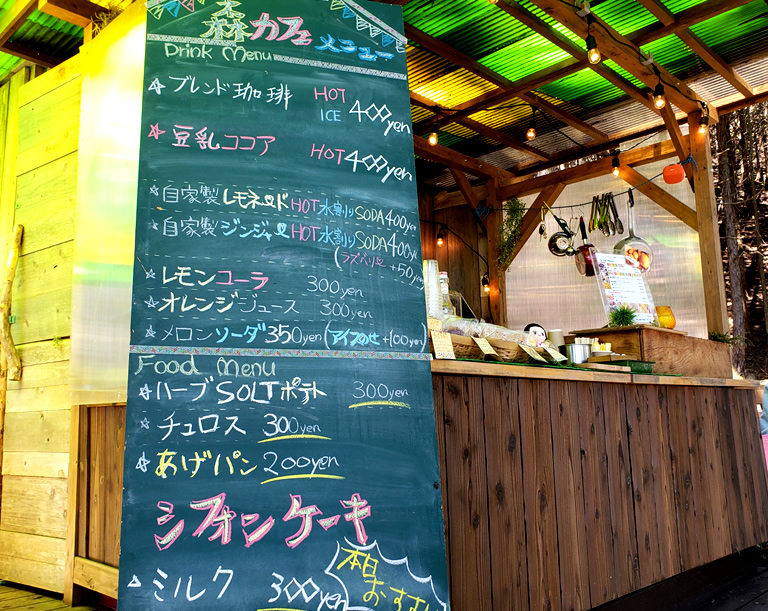 森カフェ メニュー
Drink Menu
☆ブレンド珈琲 HOT ICE 400yen
☆豆乳ココア HOT 400yen
☆自家製レモネード HOT 水割り SODA 400yen
☆自家製ジンジャー HOT 水割り SODA 400yen
(ラズベリー +50yen
☆レモンコーラ 300yen
☆オレンジジュース 300yen
☆メロンソーダ 350yen (アイスのせ +100yen)
Food Menu
☆ハーブSOLTポテト 300yen
☆チュロス 300yen
☆あげパン 200yen
シフォンケーキ
本日
△ミルク 300yen おすすめ